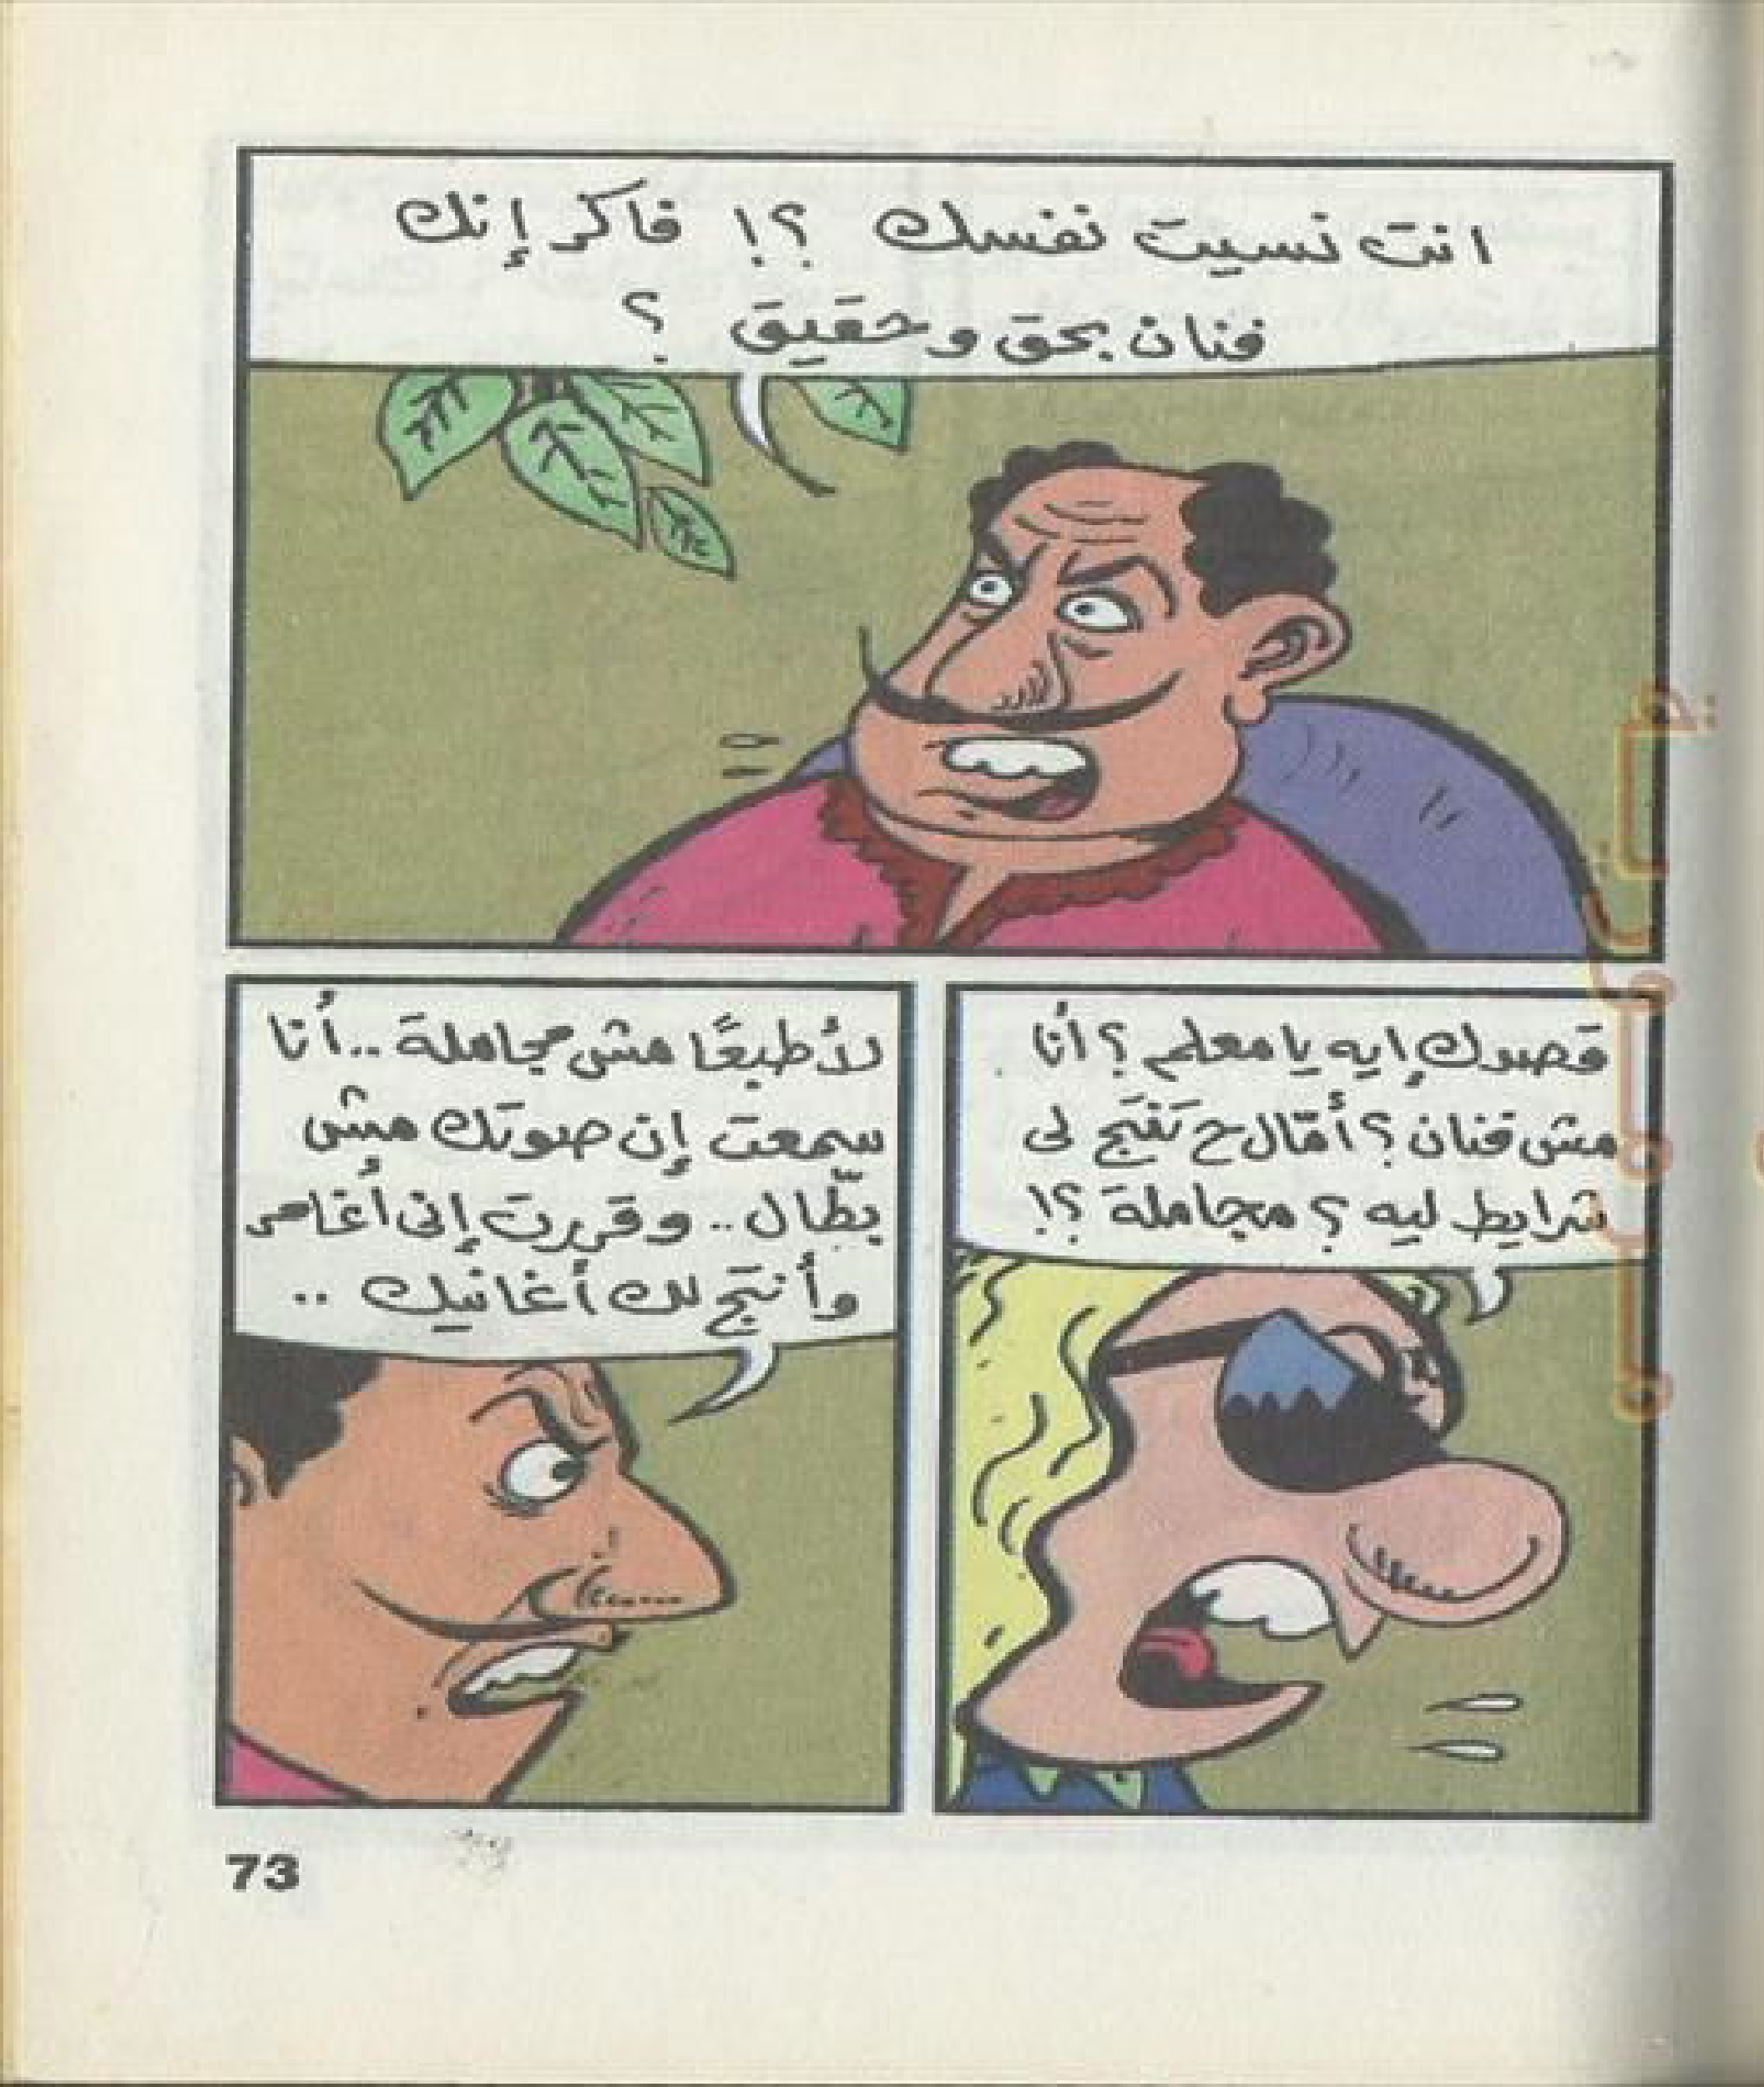 انت نسيت نفسك ؟! فاكر إنك
فنان بحق وحقيق ؟
قصدك إيه يا معلم ؟ أنا
مش فنان ؟ أمّال ح تنتج لى
شرايط ليه ؟ مجاملة ؟!
لأ طبعًا مش مجاملة .. أنا
سمعت إن صوتك مش
بطّال .. وقررت إنى أغامر
وأنتج لك أغانيك ..
73